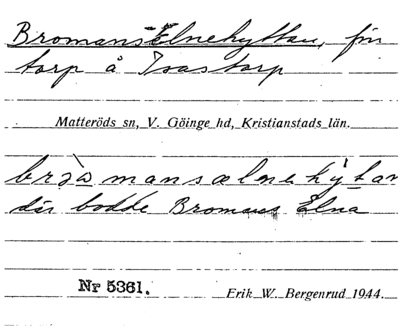 Bromans Elnehyttan, frn
torp å Toastorp
Matteröds sn, V. Göinge hd, Kristianstads län.
där bodde Bromans Elna
Nr 5361.
Erik W. Bergenrud 1944.